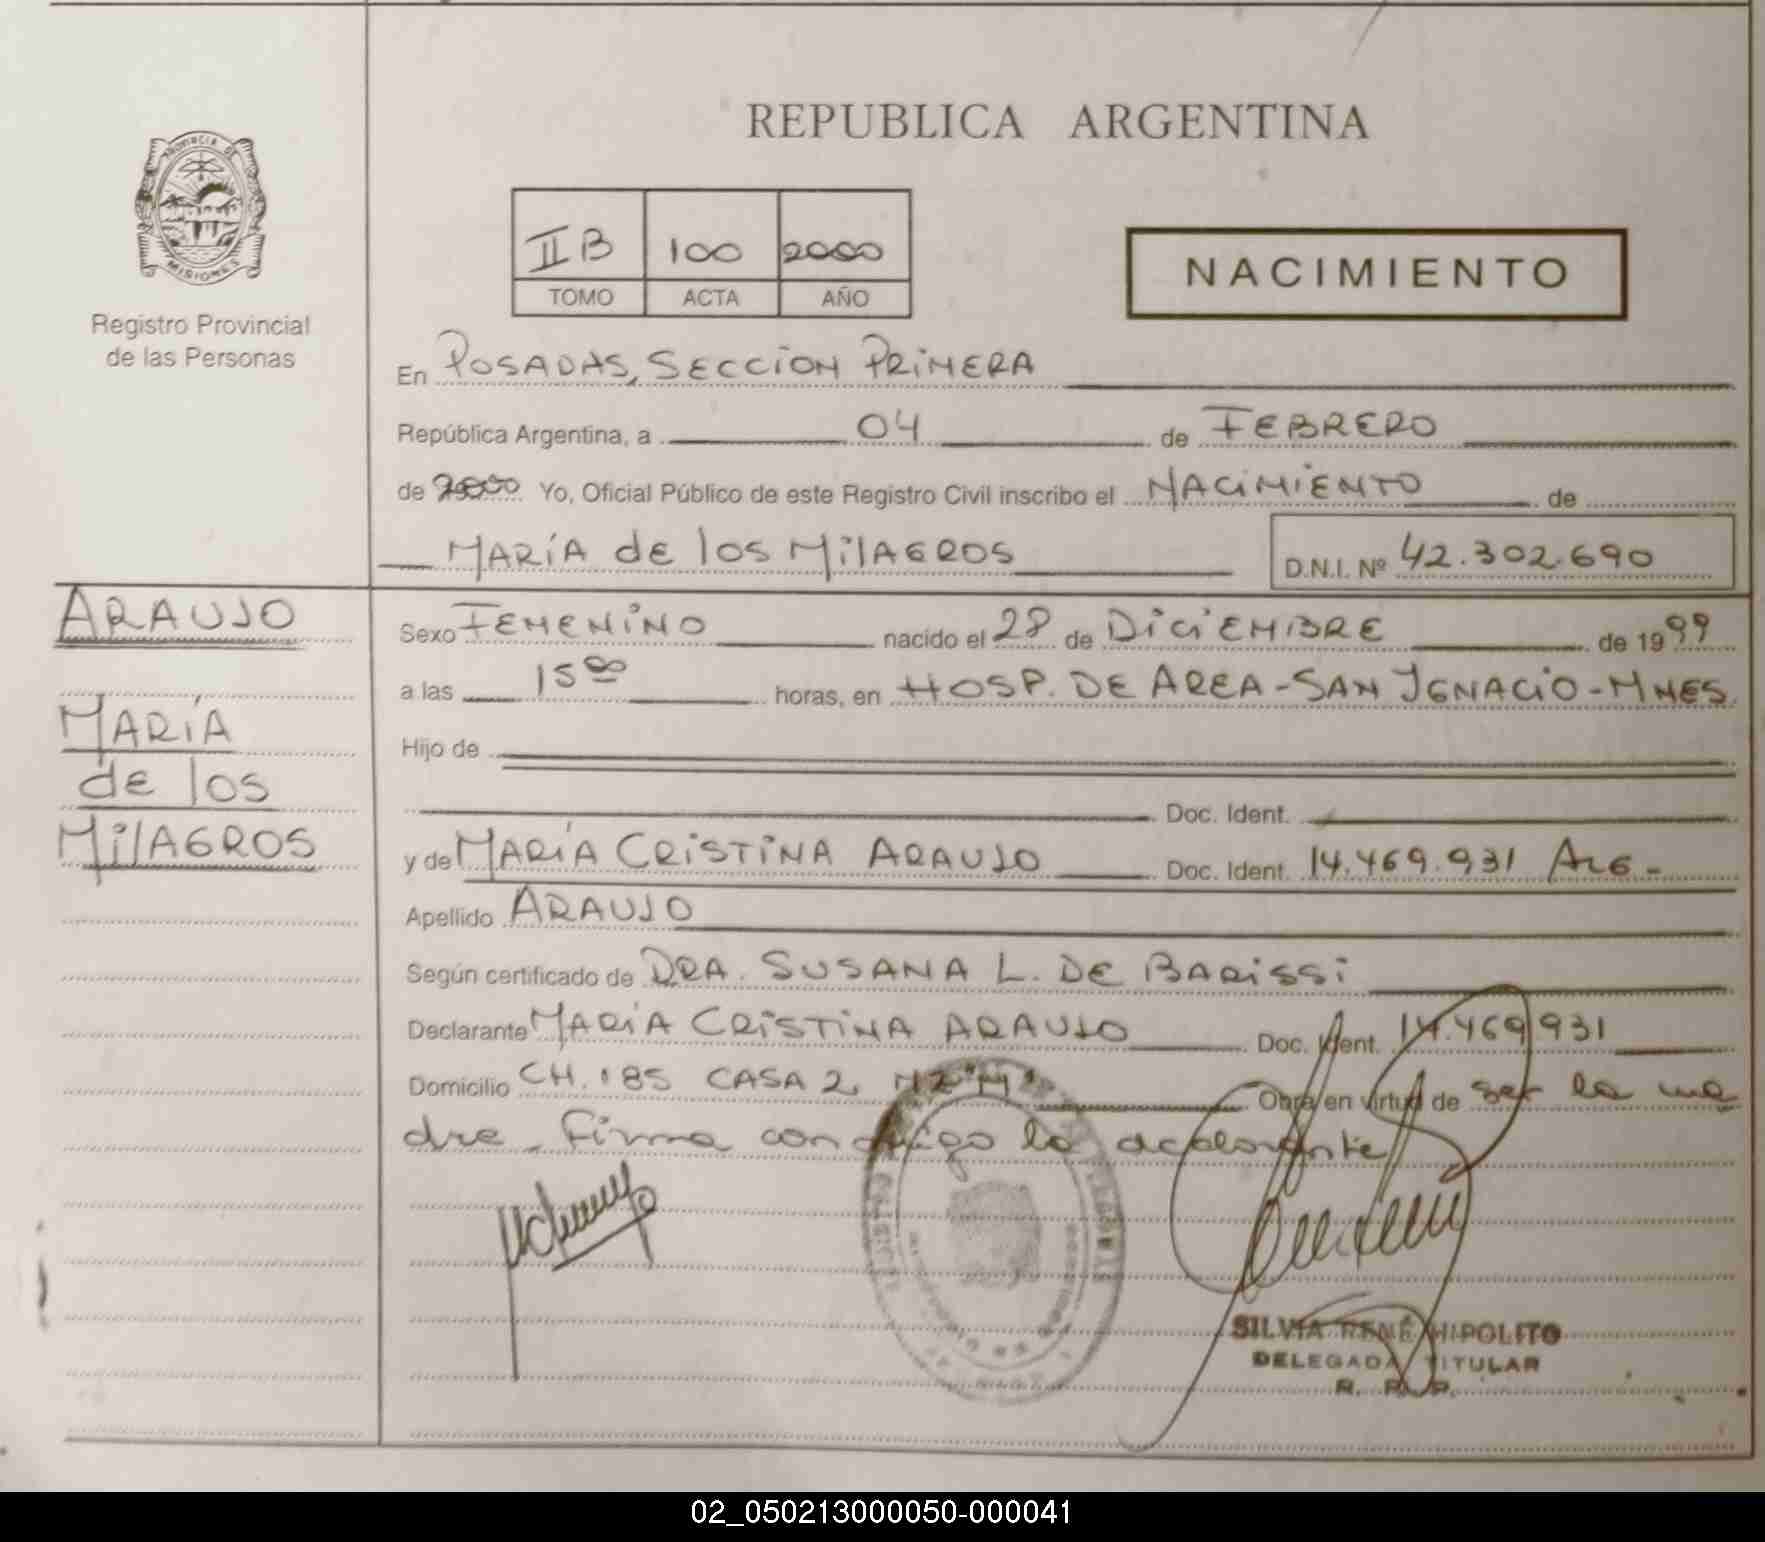 REPUBLICA ARGENTINA
PROVINCIA DE
MISIONES
Registro Provincial
de las Personas
II B 100 2000
TOMO ACTA AÑO
NACIMIENTO
En POSADAS, SECCION PRIMERA
República Argentina, a 04 de FEBRERO
de 2000 Yo, Oficial Público de este Registro Civil inscribo el NACIMIENTO de
MARÍA de los MilAGROS D.N.I. Nº 42.302.690
ARAUJO
MARÍA
de los
MilAGROS
Sexo FEMENINO nacido el 28 de DICIEMBRE de 1999
a las 15 00 horas, en HOSP. DE AREA - SAN IGNACIO - MNES.
Hijo de
Doc. Ident.
y de MARÍA CRISTINA ARAUJO Doc. Ident. 14.469.931 ARG-
Apellido ARAUJO
Según certificado de DRA. SUSANA L. DE BARISSI
Declarante MARÍA CRISTINA ARAUJO Doc. Ident. 14.469.931
Domicilio CH. 185 CASA 2 MZ "M" Obra en virtud de ser la ma
dre - firma conmigo la declarante
SILVIA RENÉ HIPOLITO
DELEGADA TITULAR
R. P. P.
02_050213000050-000041